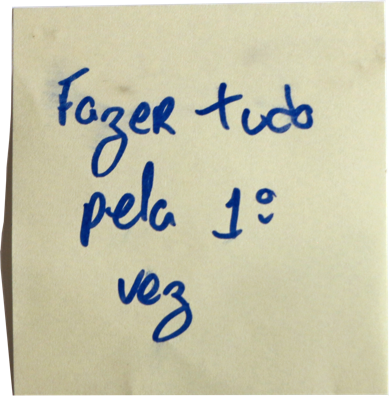 Fazer tudo
pela 1º
vez